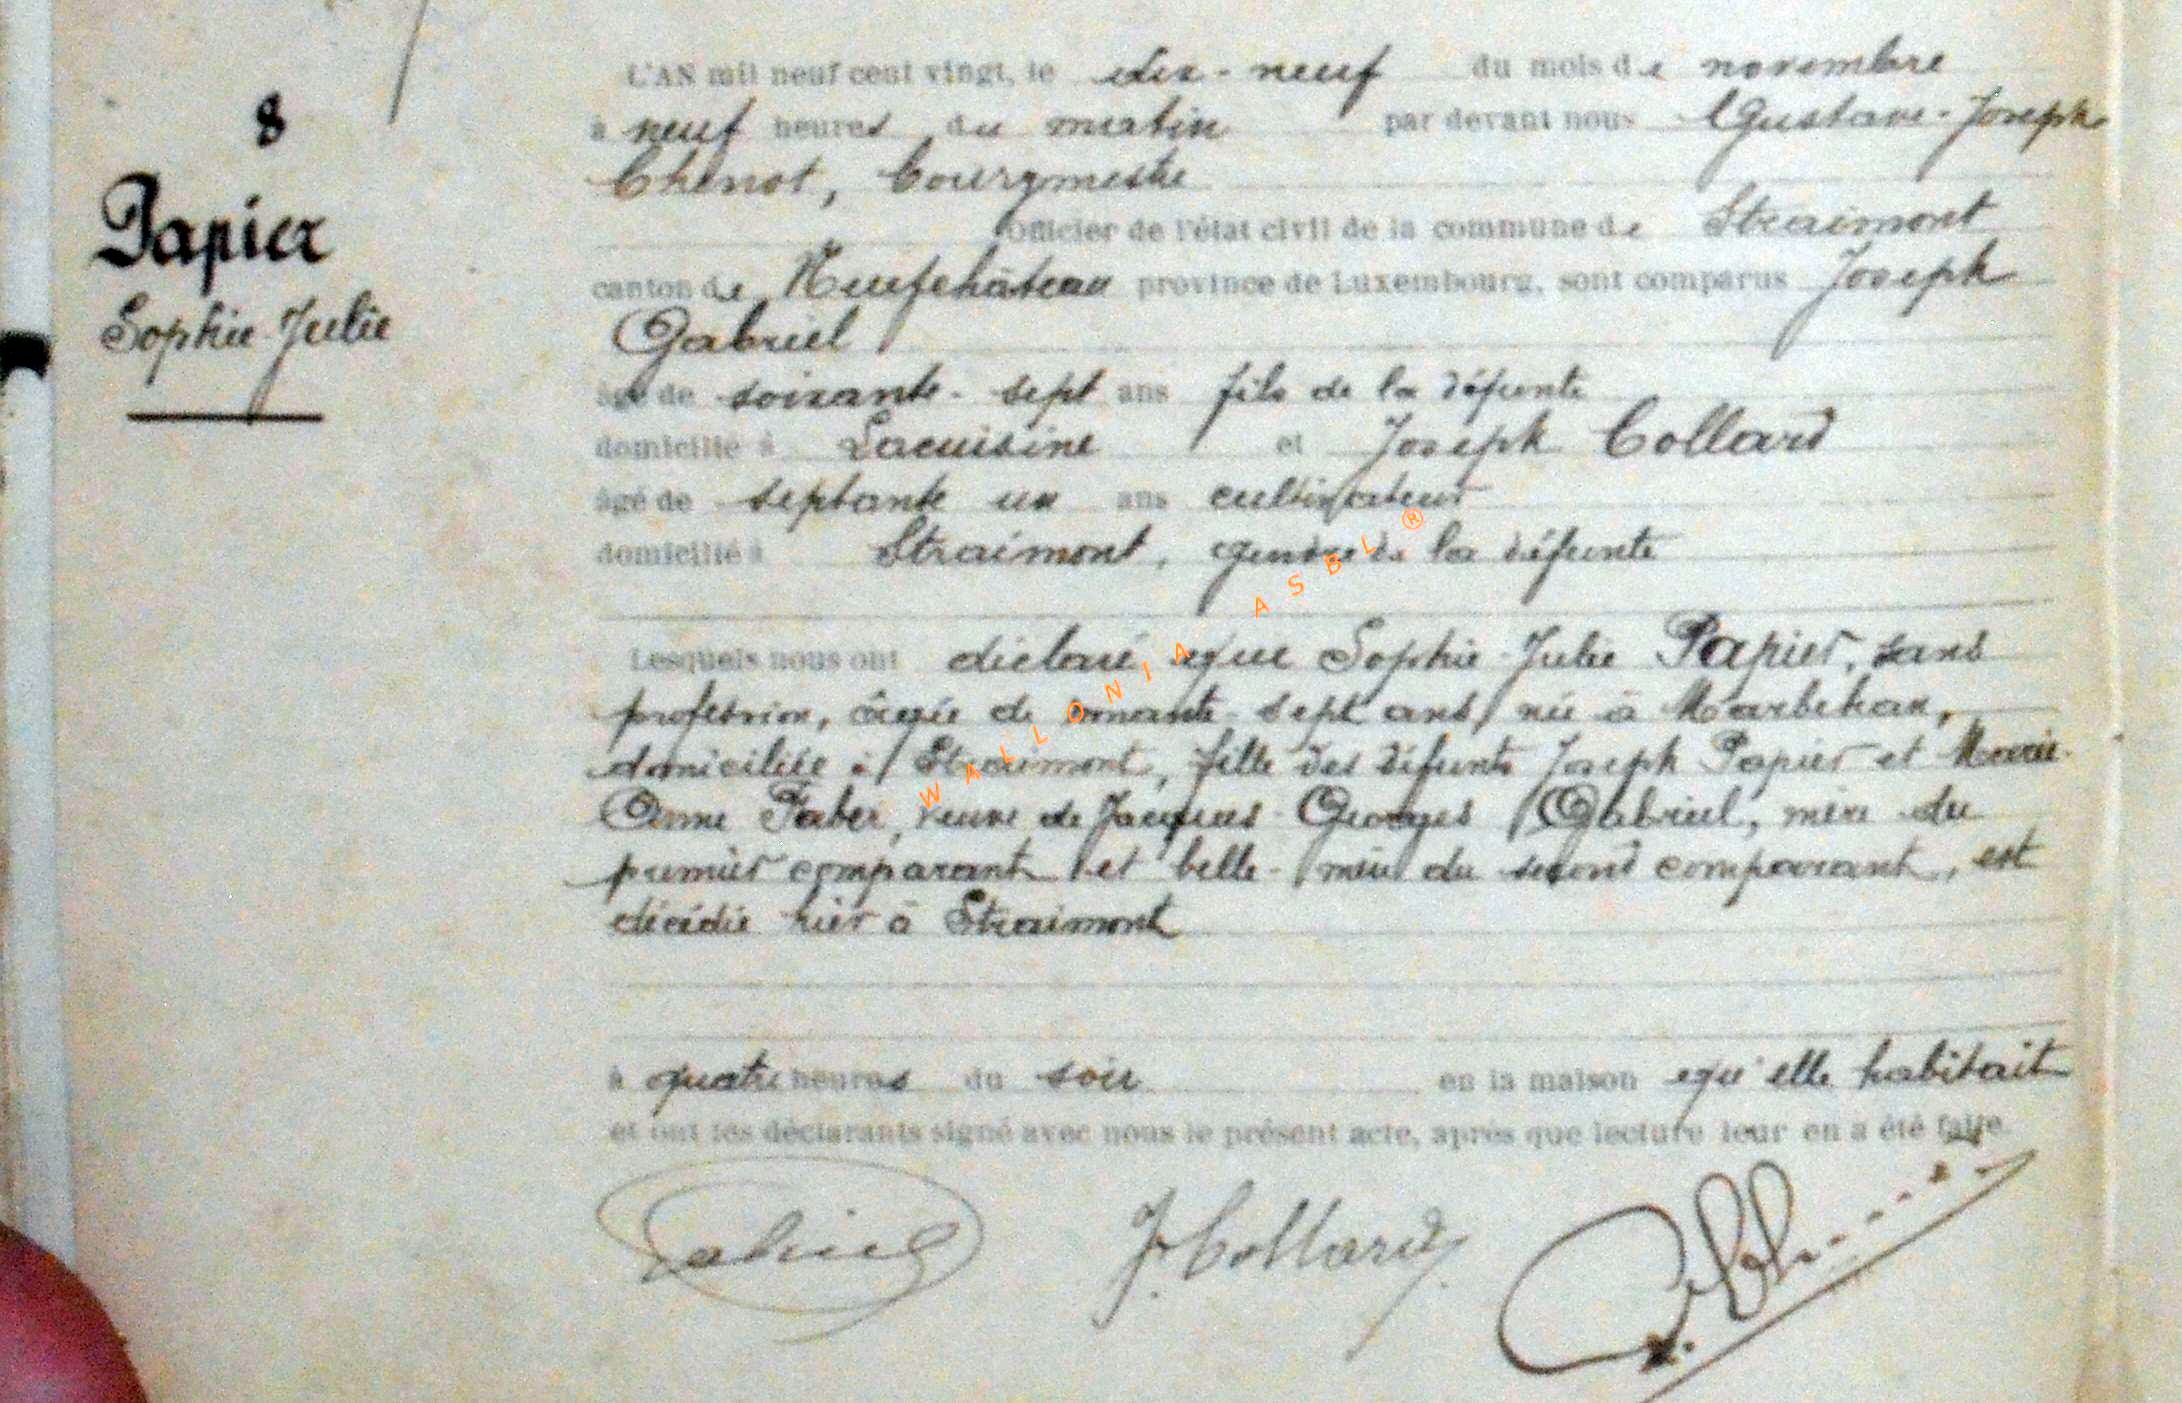 8
Papier
Sophie-Julie
L'AN mil neuf cent vingt, le dix-neuf du mois de novembre
à neuf heures du matin par devant nous Gustave-Joseph
Chenot, bourgmestre
officier de l'état civil de la commune de Straimont
canton de Neufchâteau province de Luxembourg, sont comparus Joseph
Gabriel
âgé de soixante-sept ans fils de la défunte
domicilié à Lacuisine et Joseph Collard
âgé de septante un ans cultivateur
domicilié à Straimont, gendre de la défunte
Lesquels nous ont déclaré que Sophie-Julie Papier, sans
profession, âgée de nonante-sept ans, née à Marbehan,
domiciliée à Straimont, fille des défunts Joseph Papier et Marie-
Anne Faber, veuve de Jacques-Georges Gabriel, mère du
premier comparant et belle-mère du second comparant, est
décédée hier à Straimont
à quatre heures du soir en la maison qu'elle habitait
et ont les déclarants signé avec nous le présent acte, après que lecture leur en a été faite.
Gabriel J. Collard
WALLONIA ASBL ®